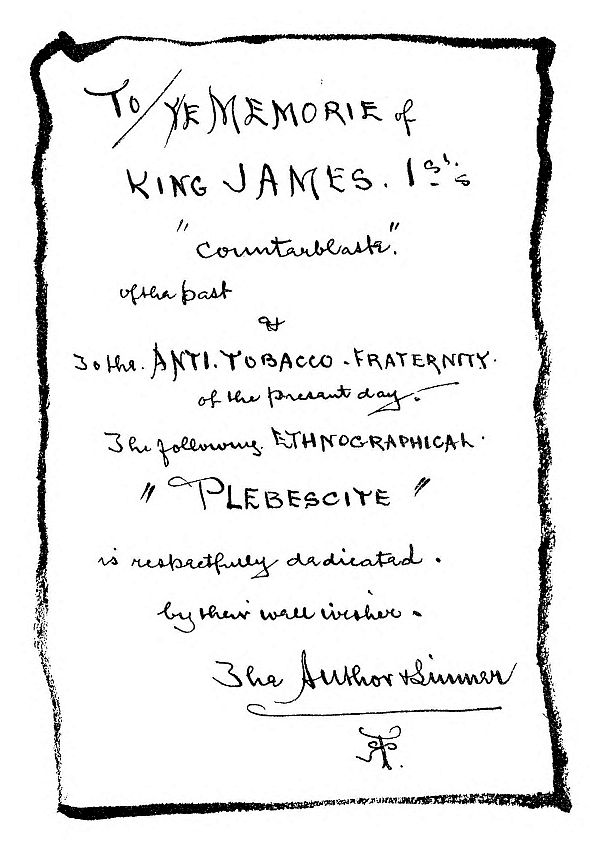 To Ye Memorie of
King James. 1st's
"Counterblaste".
of the past
&
To the. Anti. Tobacco. Fraternity.
of the present day.
The following. Ethnographical.
"Plebescite"
is respectfully dedicated.
by their well wisher.
The Author & Sinner